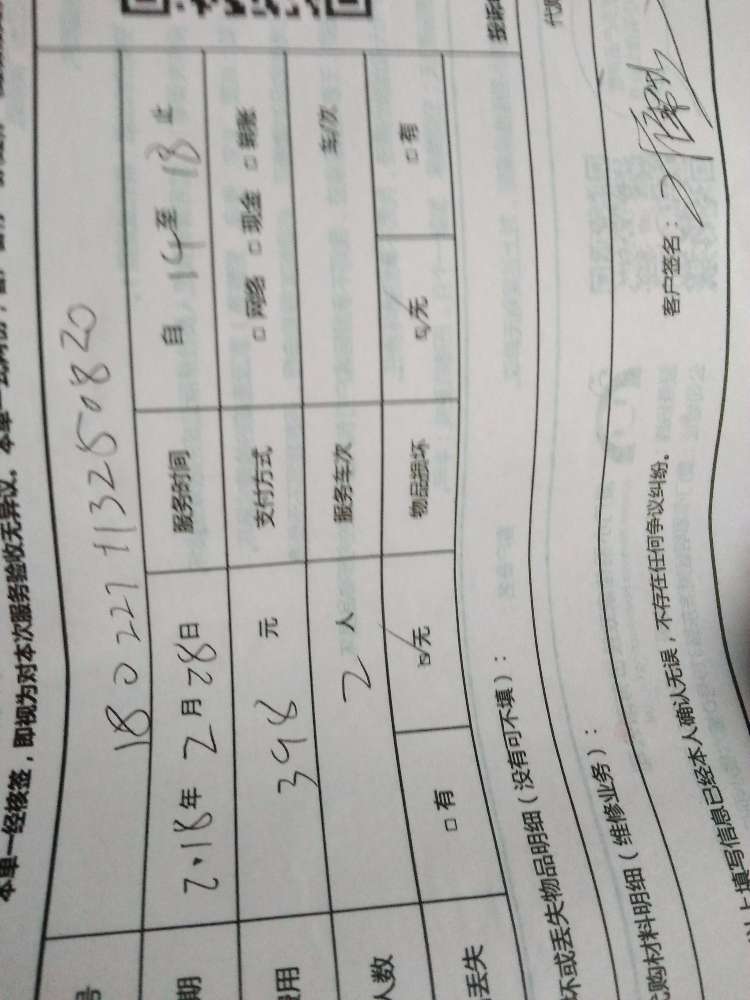 本单一经核签，即视为对本次服务验收无异议。本单一式两份，
号 180227113250820
期 2018年2月28日 服务时间 自14至18止
费用 398元 支付方式 □网络 □现金 □转账
人数 2人 服务车次 车/次
丢失 □有 ☑无 物品损坏 ☑无 □有
坏或丢失物品明细（没有可不填）：
购材料明细（维修业务）：
以上填写信息已经本人确认无误，不存在任何争议纠纷。
客户签名：